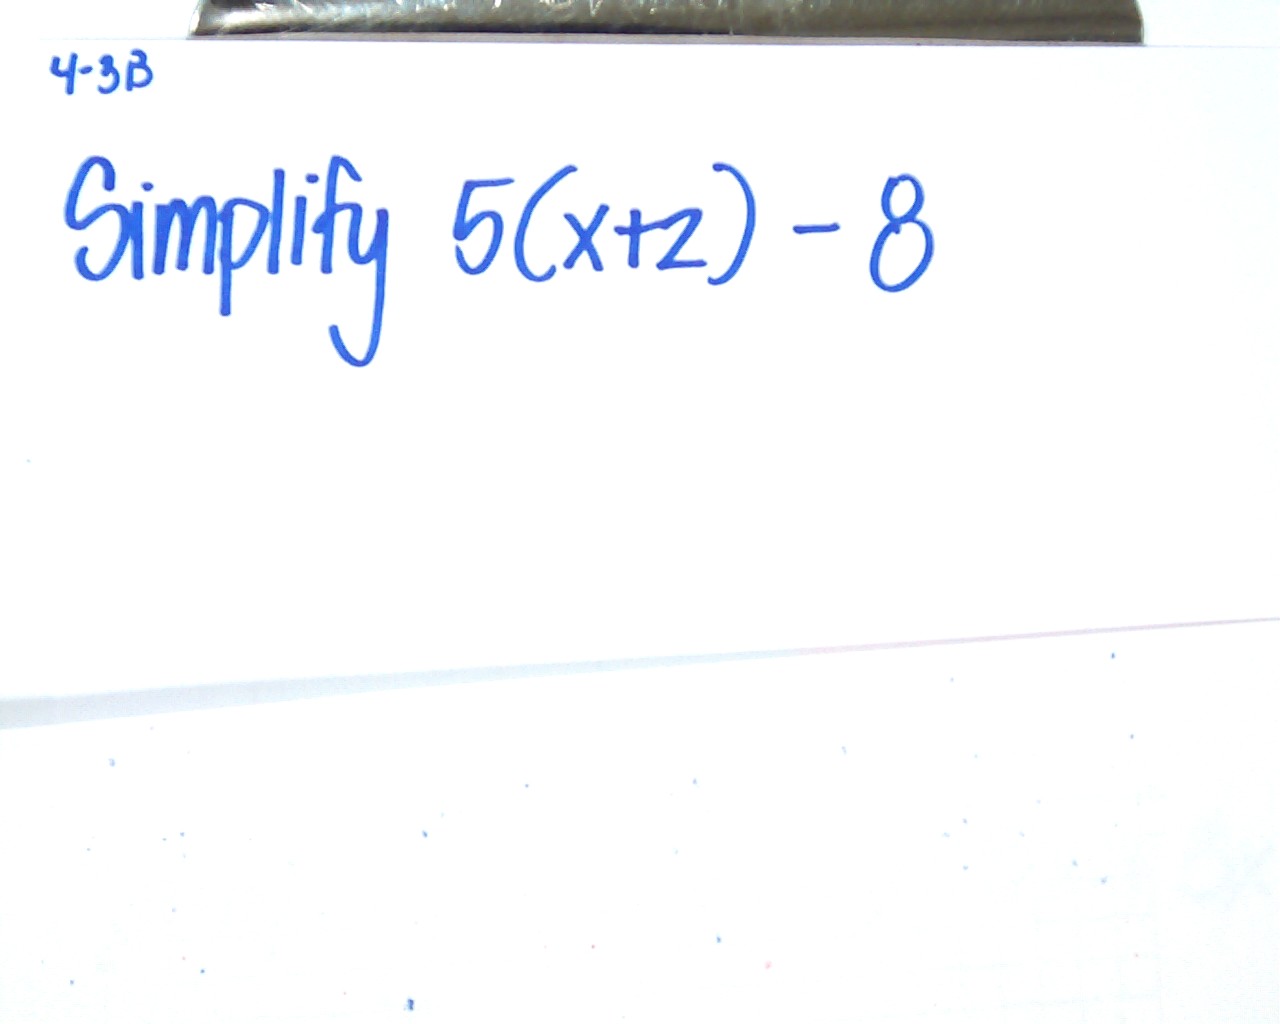 4-3B
Simplify 5(x+2) - 8